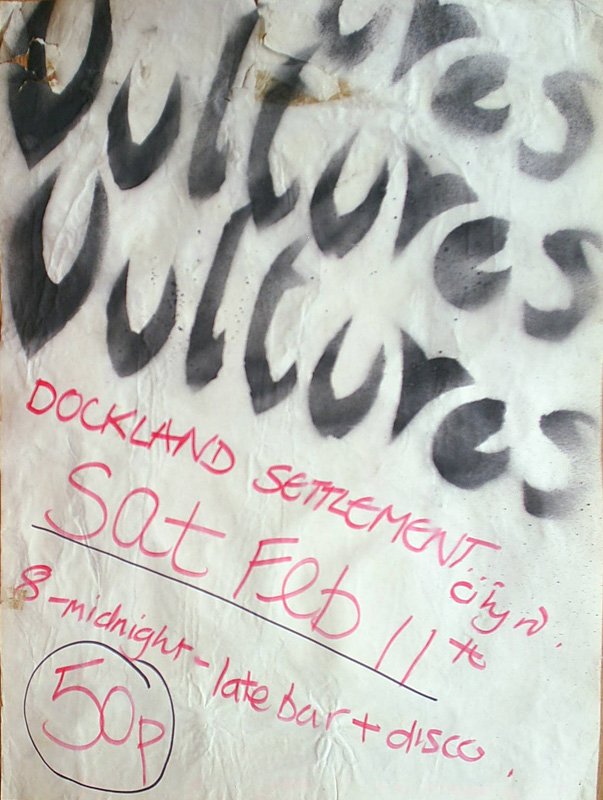 Vultures
Vultures
Vultures
DOCKLAND SETTLEMENT
City rd.
Sat Feb 11th
8-midnight-late bar + disco.
50p